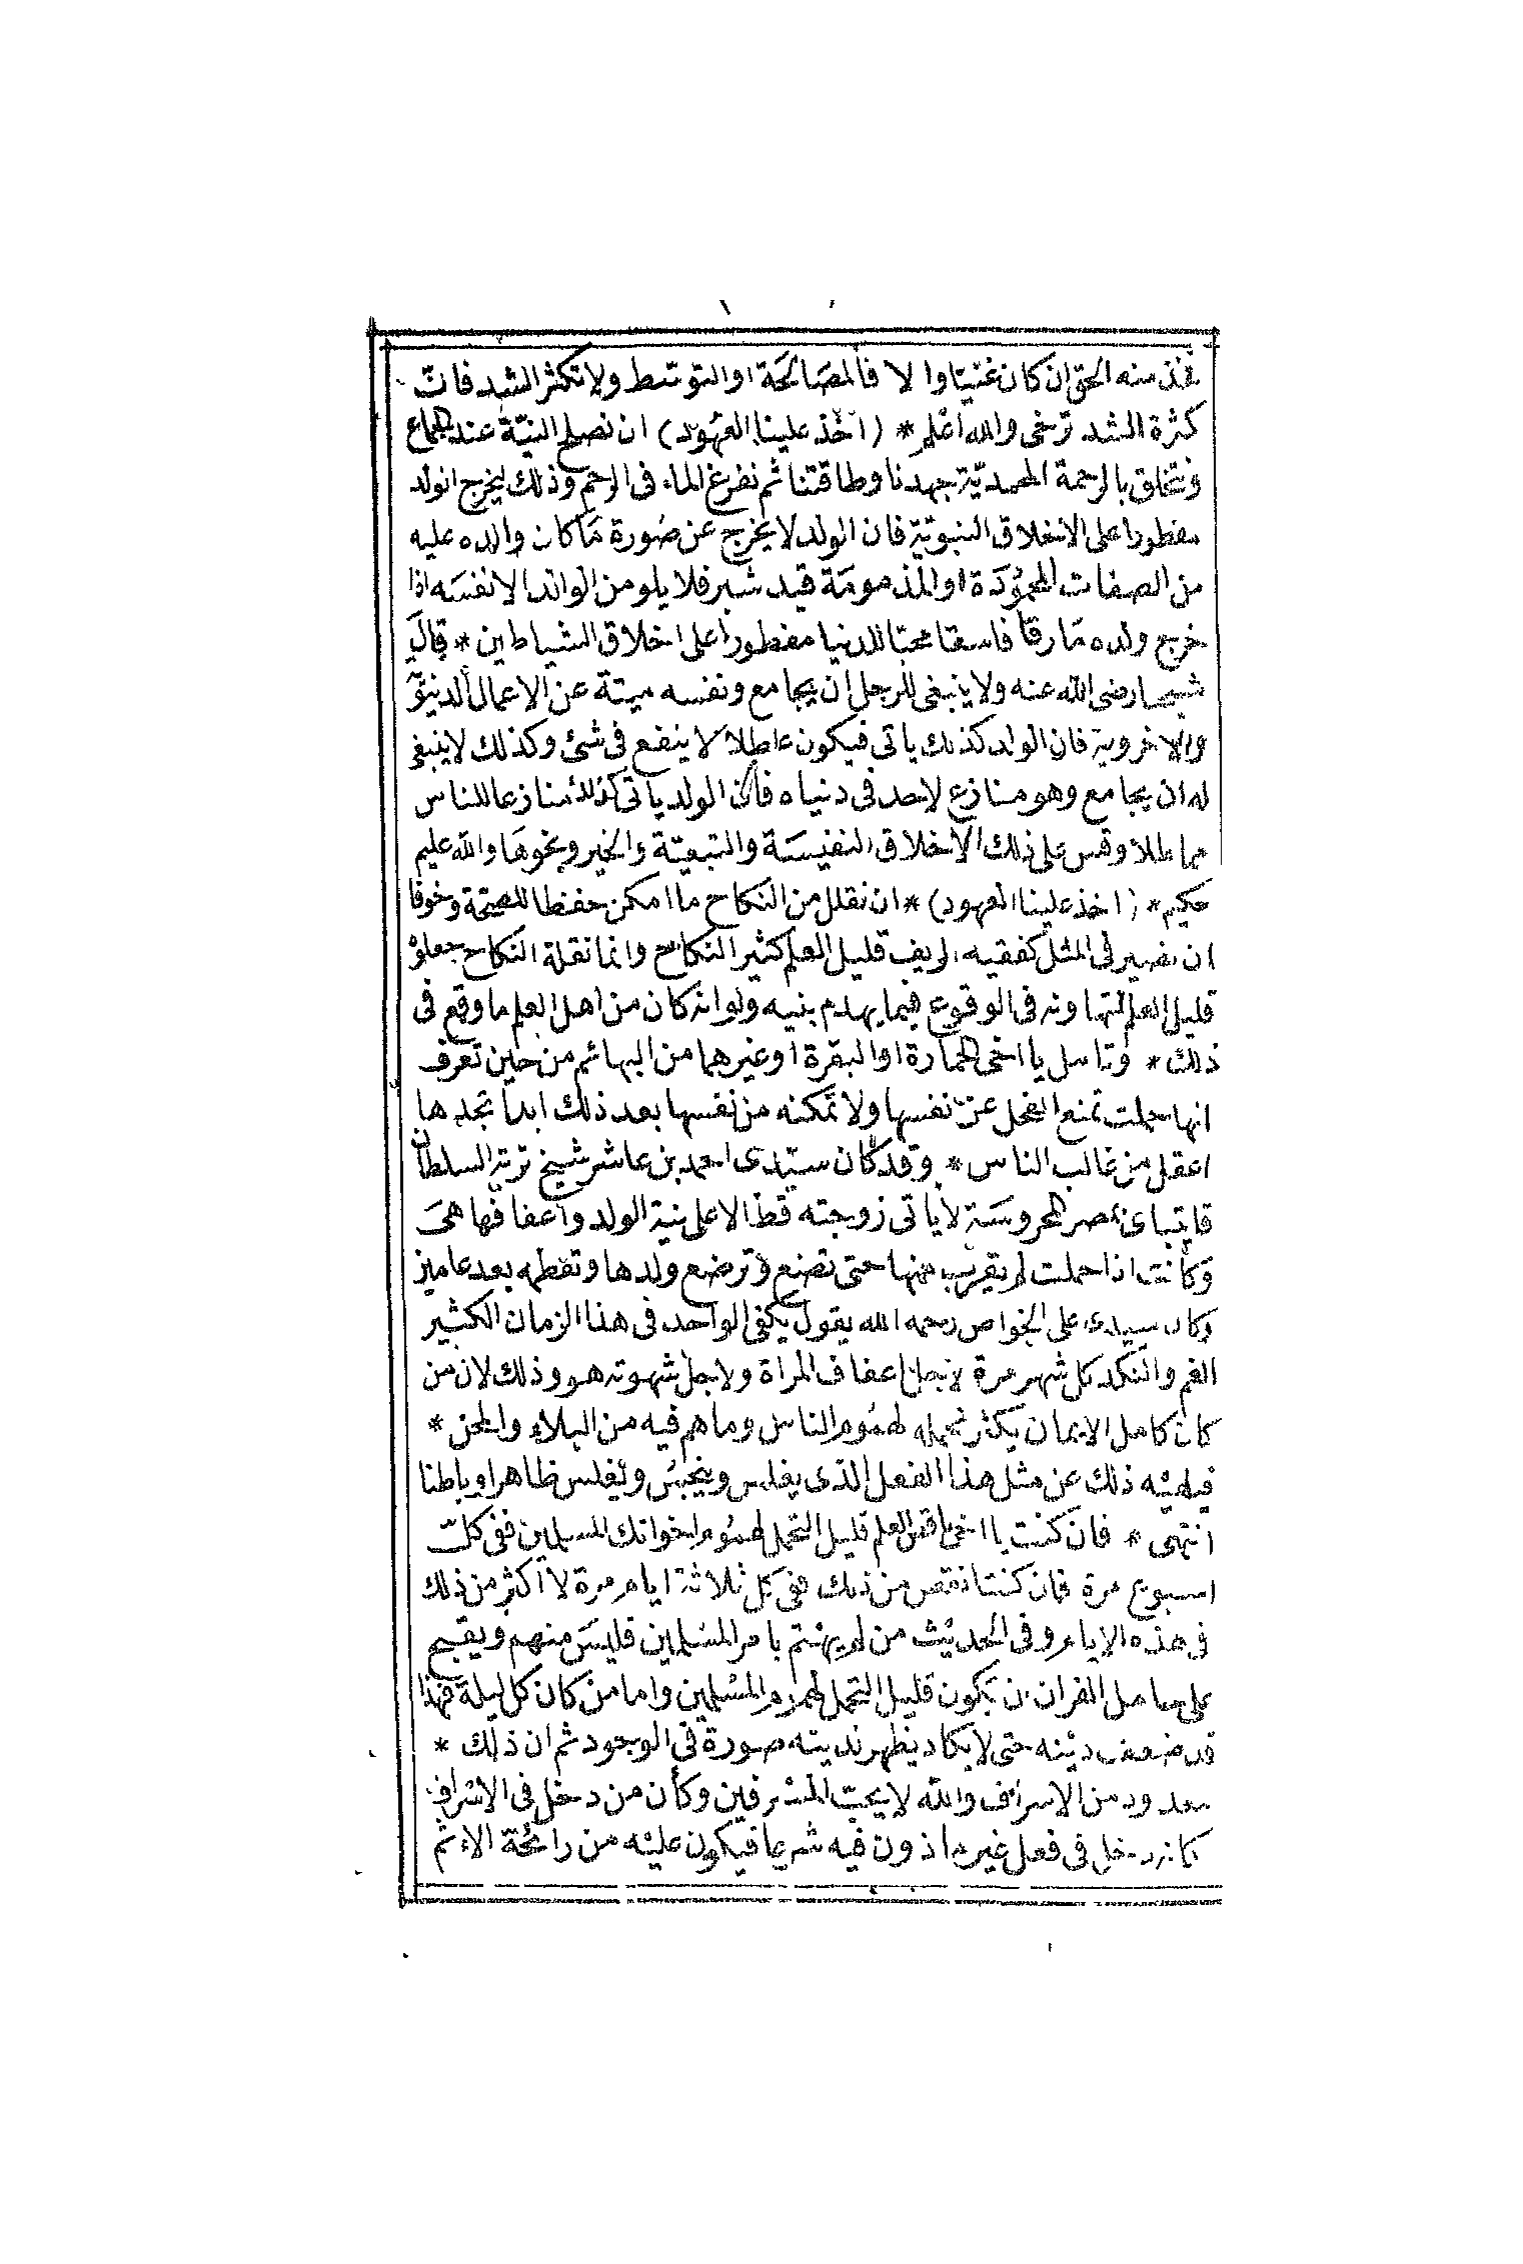 فخذ منه الحق ان كان غنيّا والا فالمصَالحَة او التوسّط ولا تكثر الشد فانّ
كثرة الشد ترخى والله اعْلم * (اخَذ علينا العهُود) ان نصلح النيّة عند الجماع
ونتخلق بالرحمة المحمديّة جهدنا وطاقتنا ثم نفرغ الماء فى الرحم وذلك ليخرج الولد
مفطورا على الاخلاق النبويّة فان الولد لا يخرج عن صُورة مَا كان والده عليه
من الصفات المحموُدَة او المذمومَة قيد شبر فلا يلومن الوالد الا نفسَه اذا
خرج ولده مَارقا فاسقا محبّا للدنيا مفطورا على اخلاق الشياطين * قالَ
شيخنا رضى الله عنه ولا ينبغى للرجل ان يجامع ونفسه ميتة عن الاعمال الدنيويّة
والاخروية فان الولد كذلك ياتى فيكون عاطلا لا ينفع فى شئ وكذلك لا ينبغى
له ان يجامع وهو منازع لاحد فى دنياه فان الولد ياتى كذلك منازعا للناس
مماطلا وقس على ذلك الاخلاق النفيسَة والتبعيّة والخير ونحوهَا والله عليم
حكيم * (اخذ علينا العهود) * ان نقلل من النكاح ما امكن حفظا للصحّة وخوفا
ان نصير فى المثل كفقيه الريف قليل العلم كثير النكاح وانما نقلة النكاح جعلوْ
قليل العلم لتهاونه فى الوقوع فيما يهدم بنيه ولو انه كان من اهل العلم ما وقع فى
ذلك * وتامل يا اخى الحمارة او البقرة او غيرهما من البهائم من حين تعرف
انها حملت تمنع الفحل عن نفسها ولا تمكنه من نفسها بعد ذلك ابدا تجدها
اعقل من غالب الناس * وقد كان سيّدى احمد بن عاشر شيخ تربة السلطان
قايتباى بمصر المحروسَة لا ياتى زوجته قط الا على نية الولد واعفافها هىَ
وكانت اذا حملت لم يقرب منها حتى تضع وترضع ولدها وتفطمه بعد عامين
وكان سيدى على الخواص رحمه الله يقول يكفى الواحد فى هذا الزمان الكثير
الغم والنكد كل شهر مرة لاجل اعفاف المراة ولا جل شهوته هو وذلك لان من
كان كامل الايمان يكثر تحمله لهمُوم الناس وما هم فيه من البلاء والمحن *
فيلهيْه ذلك عن مثل هذا الفعل الذى يفلس وينجبسُ ويُفلس ظاهرا وباطنا
انتهى * فان كنت يا اخى ناقص العلم قليل التحمل لهمُوم اخوانك المسلمين ففى كلّ
اسبوع مرة فان كنت انقص من ذلك ففى كل ثلاثة ايام مرة لا اكثر من ذلك
فى هذه الايام وفى الحديْث من لم يهتم بامر المسْلمين فليسَ منهم ويقبح
على حامل القران ان يكون قليل التحمل لهموم المسْلمين واما من كان كل ليلة فهذا
قد ضعف ديْنه حتى لا يكاد يظهر لديته صورة فى الوجود ثم ان ذلك *
معدود من الاسراف والله لا يحبّ المسْرفين وكأن من دخل فى الاسْراف
كانه دخل فى فعل غير ماذون فيه شرعا فيكون عليْه من رائحة الاثم